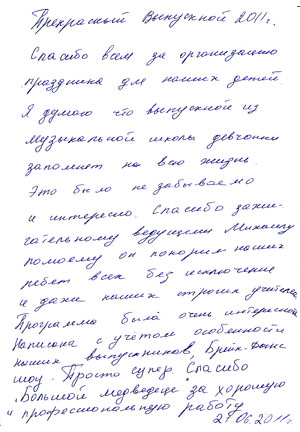 Прекрасный Выпускной 2011г.
Спасибо всем за организацию
праздника для наших детей.
Я думаю что выпускной из
музыкальной школы девчонки
запомнят на всю жизнь.
Это было не забываемо
и интересно. Спасибо зажи-
гательному ведущему Михаилу
помоему он покорил наших
ребят всех без исключения
и даже наших строгих учителей
Программа была очень интересной
Написана с учетом особенности
наших выпускников, Брейк-данс
шоу. Просто супер. Спасибо
"Большой медведице" за хорошую
и профессиональную работу
21.06.2011г.